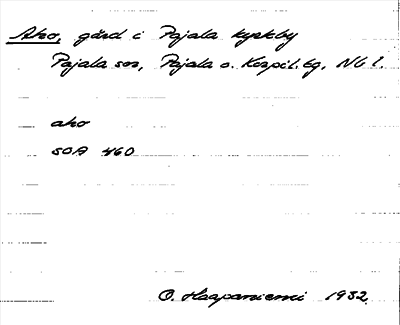 Aho, gård i Pajala kyrkby
Pajala sn, Pajala o. Korpil. tg, Nb l.
aho
SOA 460
O. Haapaniemi 1932.